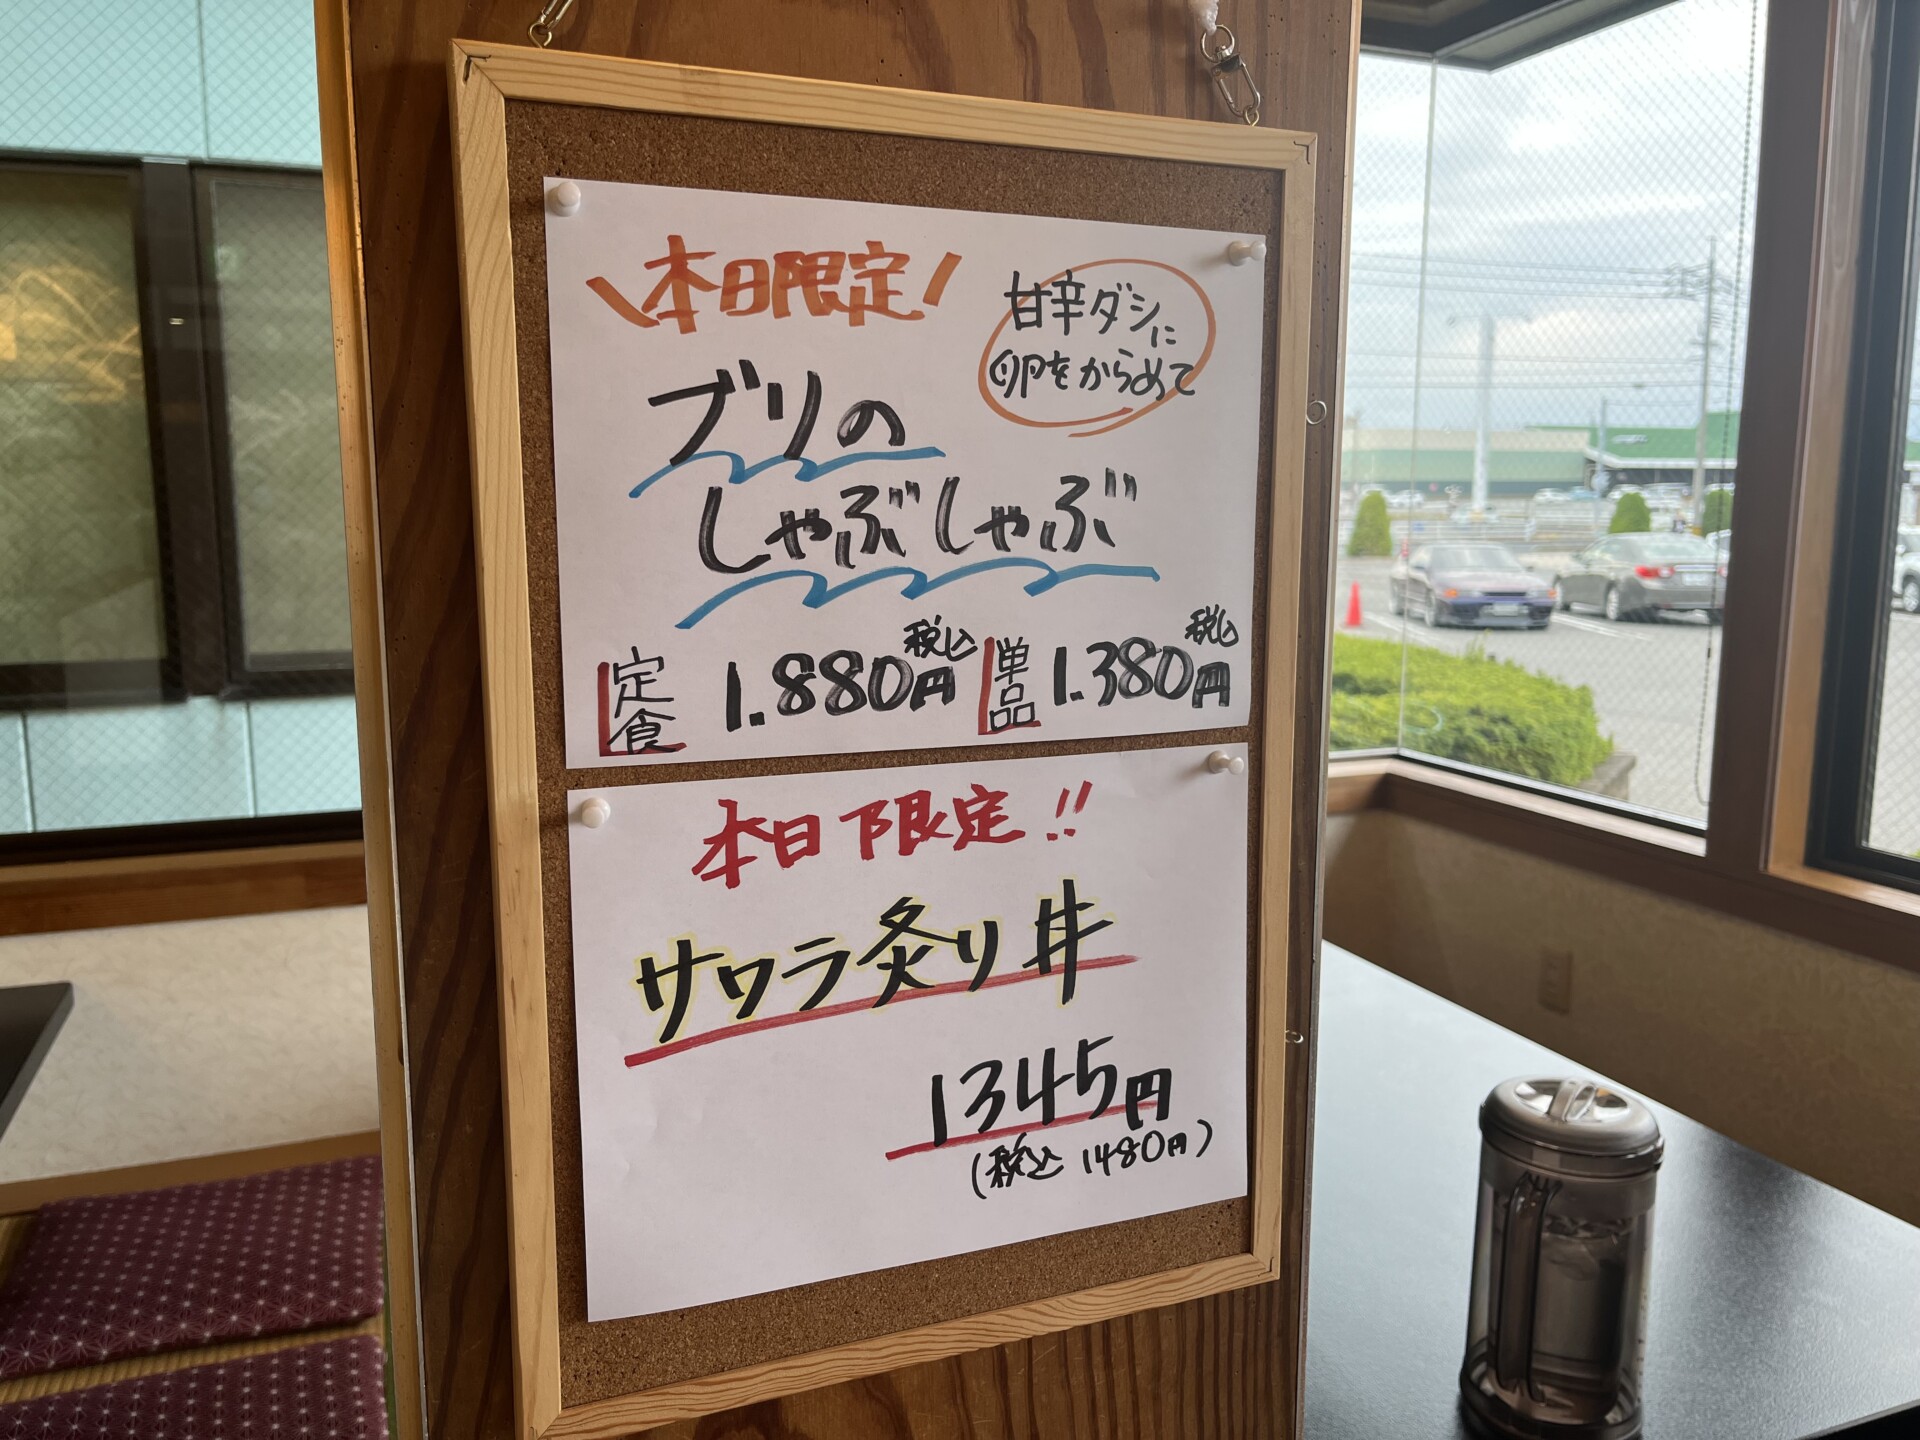 \本日限定/
甘辛ダシに
卵をからめて
ブリの
しゃぶしゃぶ
定食 1.880円 税込 単品 1.380円 税込
本日限定!!
サワラ炙り丼
1345円
(税込 1480円)